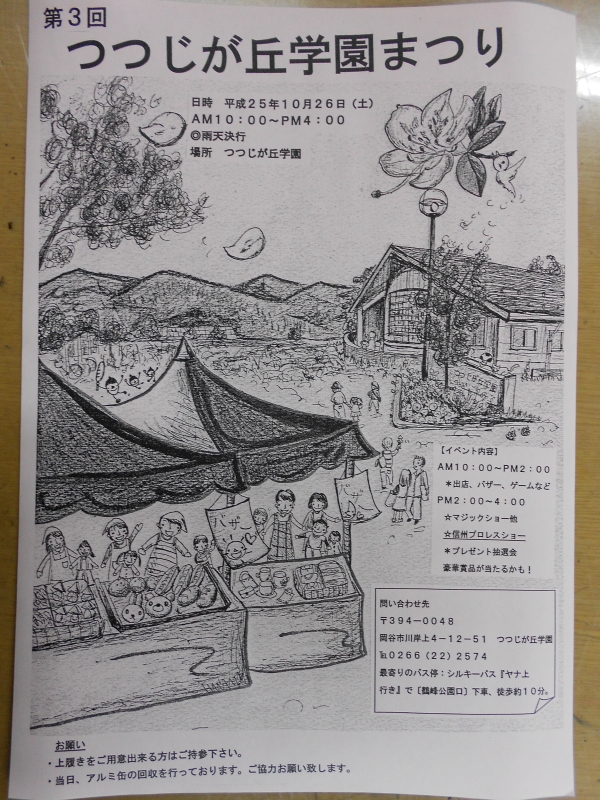 第３回
つつじが丘学園まつり
日時　平成２５年１０月２６日（土）
ＡＭ１０：００～ＰＭ４：００
◎雨天決行
場所　つつじが丘学園
バザー
【イベント内容】
ＡＭ１０：００～ＰＭ２：００
＊出店、バザー、ゲームなど
ＰＭ２：００～４：００
☆マジックショー他
☆信州プロレスショー
＊プレゼント抽選会
豪華賞品が当たるかも！
問い合わせ先
〒３９４－００４８
岡谷市川岸上４－１２－５１　つつじが丘学園
℡０２６６（２２）２５７４
最寄りのバス停：シルキーバス『ヤナ上
行き』で［鶴峰公園口］下車、徒歩約１０分。
お願い
・上履きをご用意出来る方はご持参下さい。
・当日、アルミ缶の回収を行っております。ご協力お願い致します。